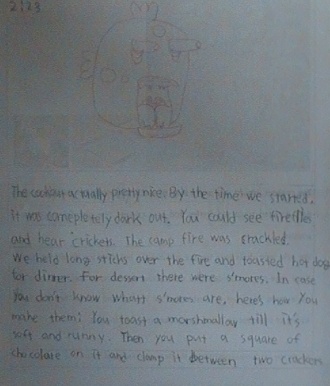 2123
The cookout actually pretty nice. By the time we started,
it was comepletely dark out. You could see fireflies
and hear crickets. The camp fire was crackled.
We held long sticks over the fire and toasted hot dog
for dinner. For dessert there were s'mores. In case
You don't know whatt s'mores are, here's how You
make them: You toast a marshmallow till it's
soft and runny. Then you put a square of
chocolate on it and clamp it between two crackers